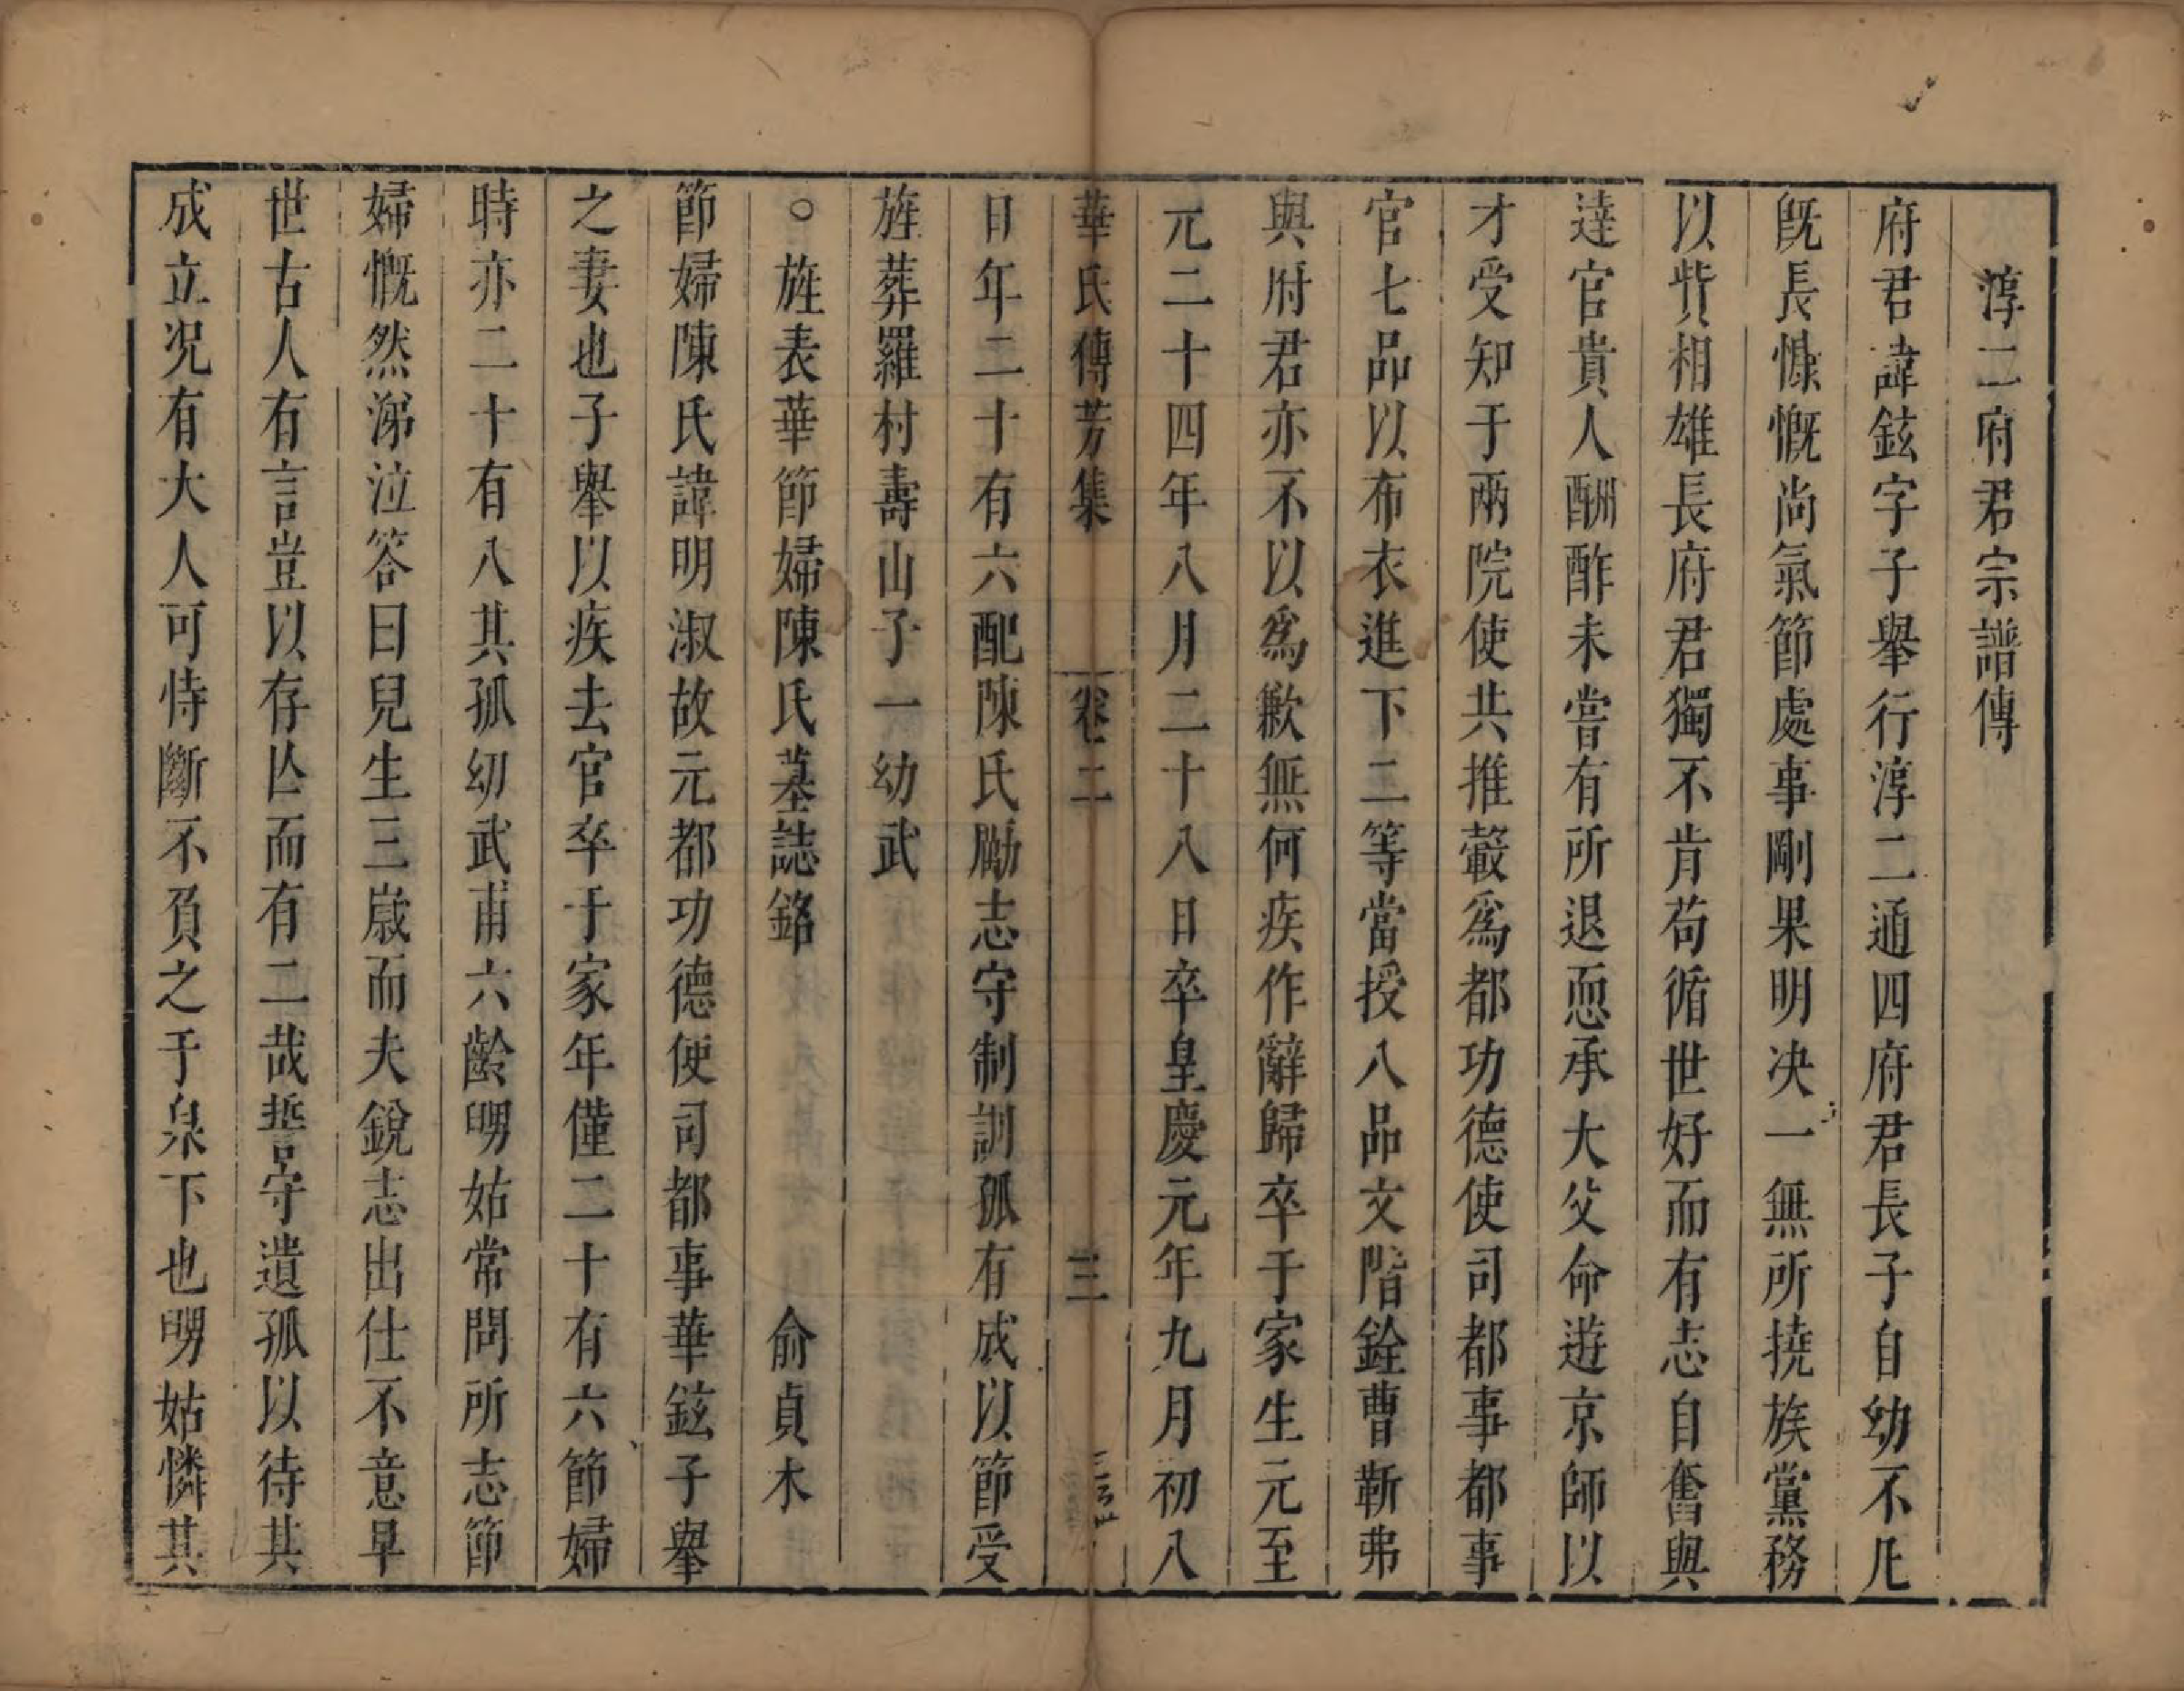 淳二府君宗譜傳
府君諱鉉字子舉行淳二通四府君長子自幼不凡
旣長慷慨尚氣節處事剛果明决一無所撓族黨務
以貲相雄長府君獨不肯苟循世好而有志自奮與
達官貴人酬酢未嘗有所退恧承大父命遊京師以
才受知于兩院使共推轂爲都功德使司都事都事
官七品以布衣進下二等當授八品文階銓曹靳弗
與府君亦不以爲歉無何疾作辭歸卒于家生元至
元二十四年八月二十八日卒皇慶元年九月初八
華氏傳芳集 卷二 三
日年二十有六配陳氏勵志守制訓孤有成以節受
旌葬羅村壽山子一幼武
○旌表華節婦陳氏墓誌銘 俞貞木
節婦陳氏諱明淑故元都功德使司都事華鉉子舉
之妻也子舉以疾去官卒于家年僅二十有六節婦
時亦二十有八其孤幼武甫六齡嬲姑常問所志節
婦慨然涕泣答曰兒生三歲而夫銳志出仕不意早
世古人有言豈以存亾而有二哉誓守遺孤以待其
成立况有大人可恃斷不負之于泉下也舅姑憐其